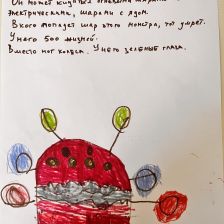 Он может кидаться огненными шарами
электрическими, шарами с ядом.
В кого попадет шар этого монстра, тот умрет.
У него 500 жизней.
Вместо ног колёса. У него зелёные глаза.